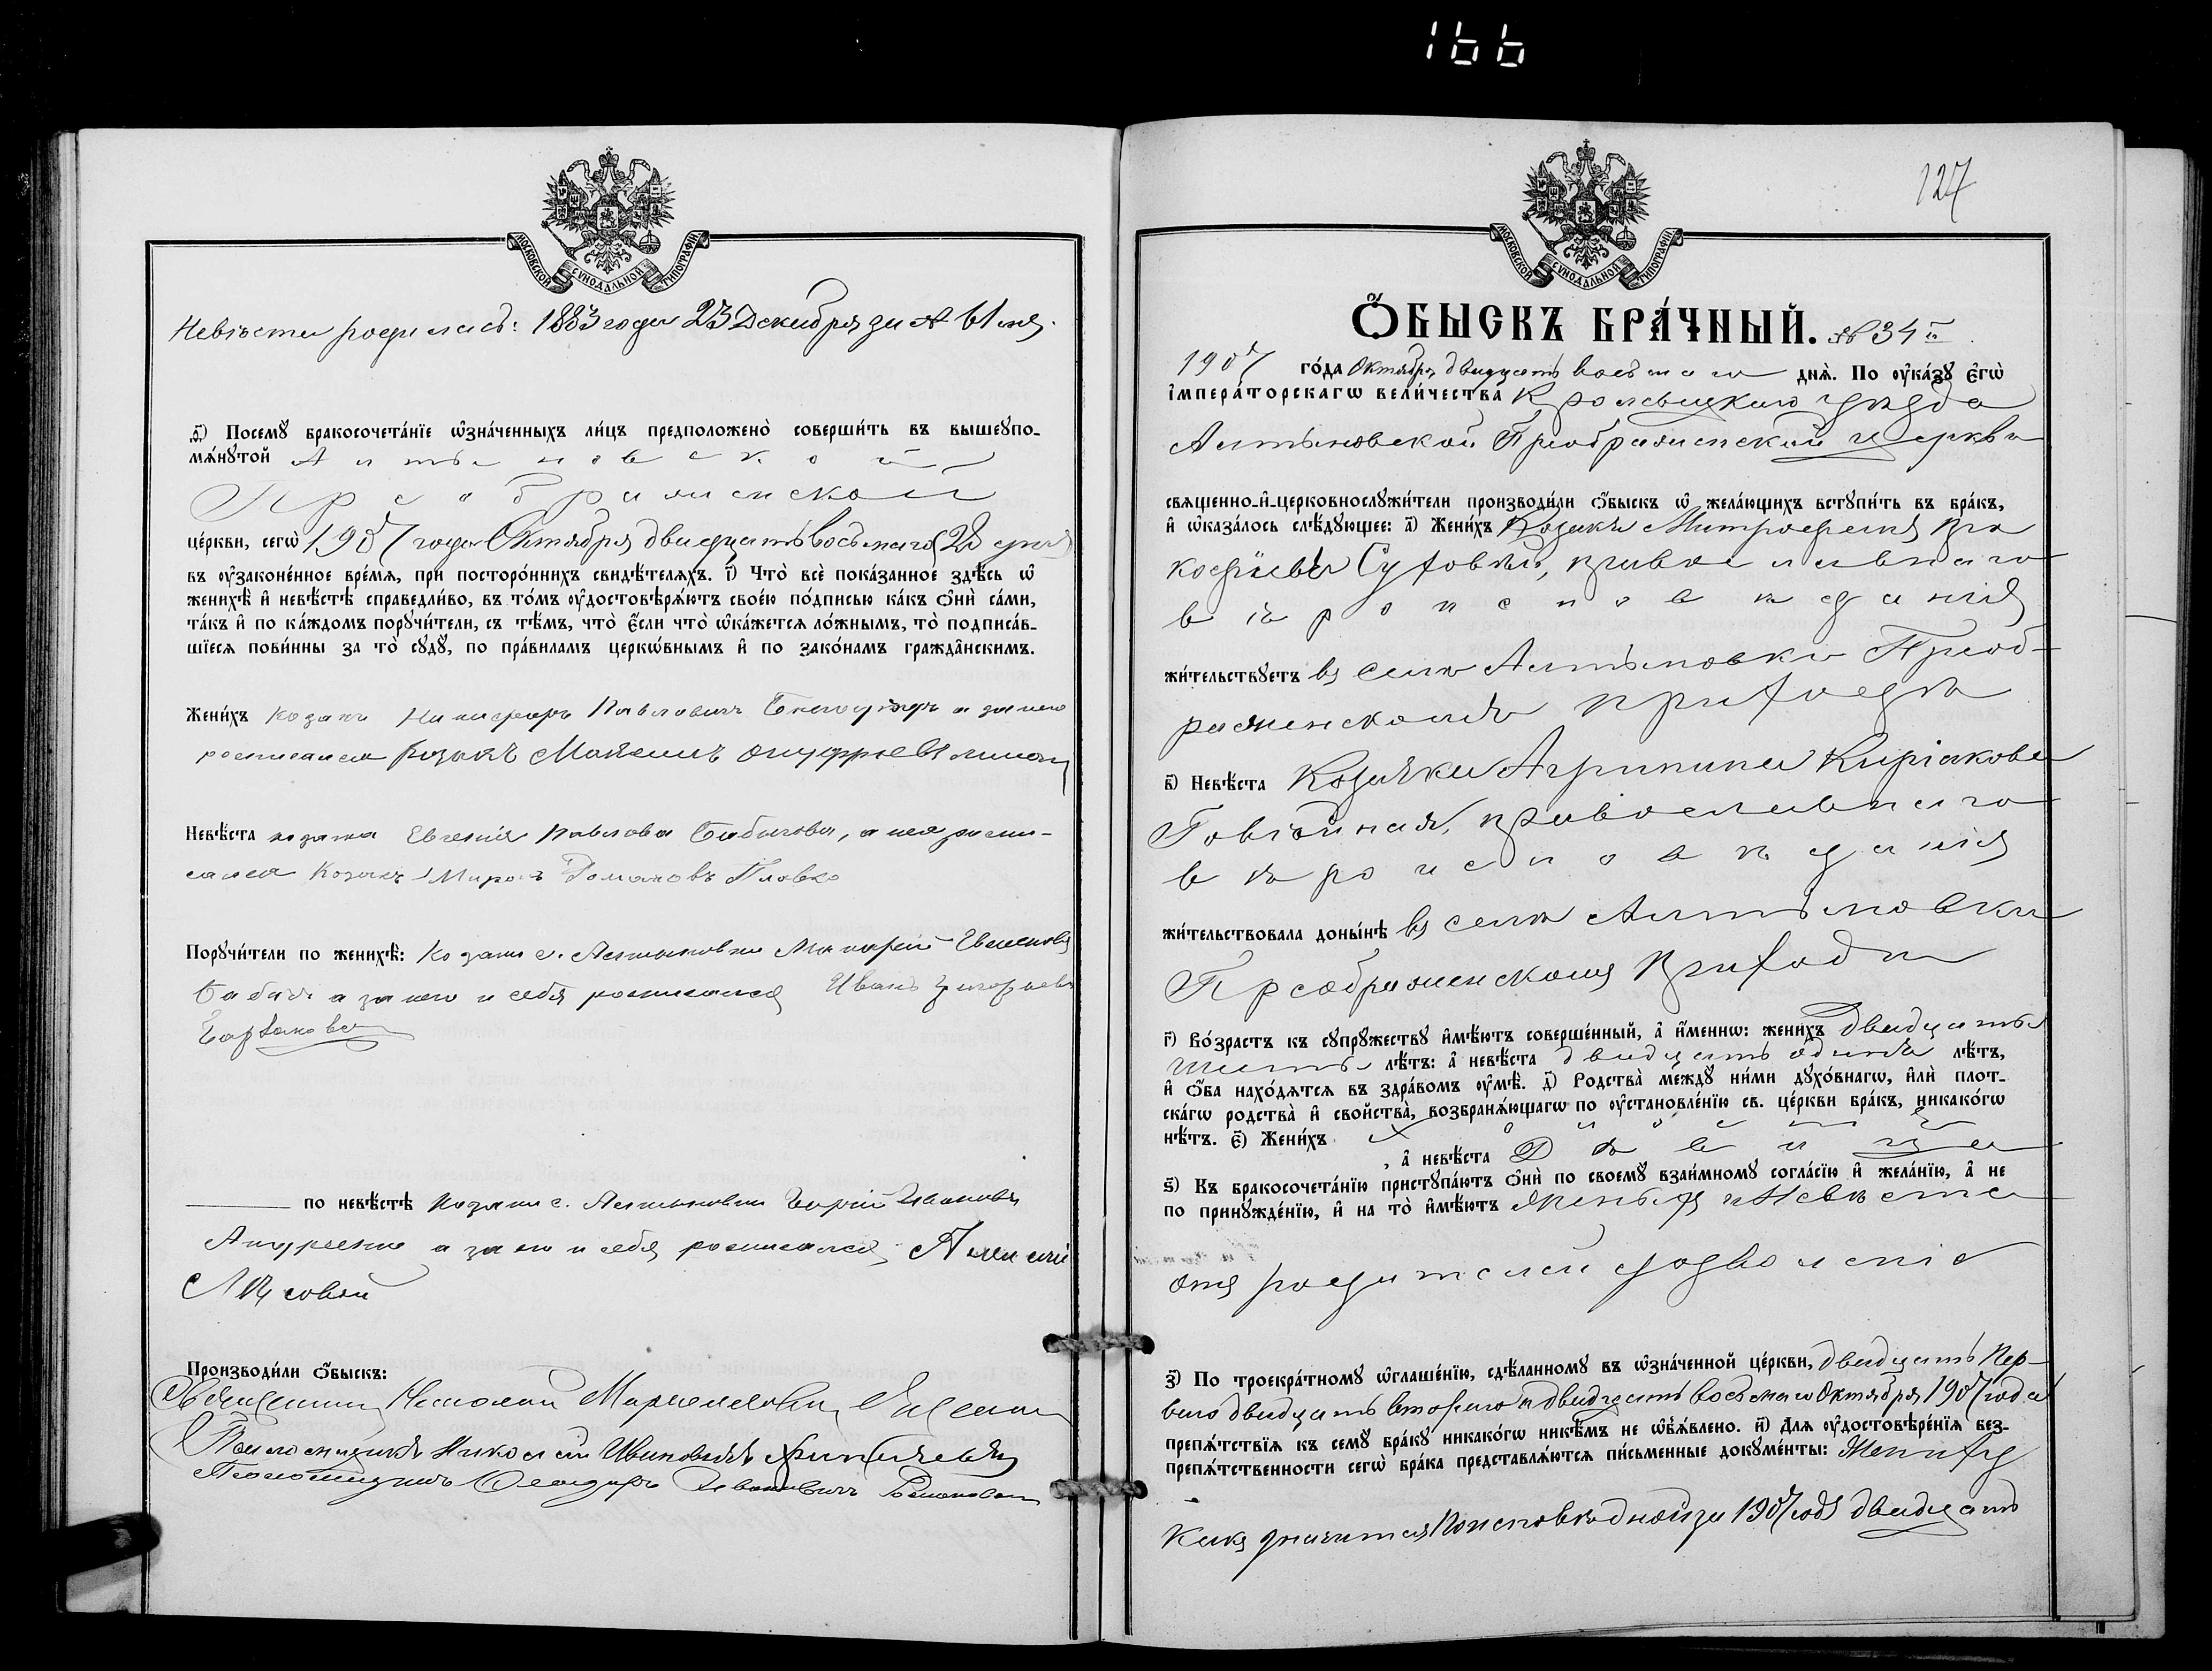 166
МОСКОВСКОЙ СУНОДАЛЬНОЙ ТИПОГРАФІИ
Невѣста родилась: 1883 года 23 Декабря за № 61мъ.
Посемꙋ̀ бракосочета́нїе ѡ҆зна́ченныхъ ли́цъ предположено̀ соверши́ть въ вышеꙋпо-
мѧ́нꙋтой Алтыновской
Преображенской
це́ркви, сегѡ̀ 1907 года Октября двадцать восьмаго (28) дня
въ ᲂу҆законе́нное вре́мѧ, при посторо́ннихъ свидѣ́телѧхъ. і҃) Что̀ всѐ пока́занное здѣ́сь ѡ҆
женихѣ̀ и҆ невѣ́стѣ справедли́во, въ то́мъ ᲂу҆достовѣрѧ́ютъ свое́ю по́дписью ка́къ ѻ҆нѝ са́ми,
та́къ и҆ по ка́ждомъ порꙋчи́тели, съ тѣ́мъ, что̀ є҆́сли что̀ ѡ҆ка́жетсѧ ло́жнымъ, то̀ подписа́в-
шїесѧ пови́нны за то̀ сꙋдꙋ̀, по пра́виламъ церко́внымъ и҆ по зако́намъ гражда̑нскимъ.
Жени́хъ козакъ Никифоръ Павловичъ а за него
росписался Козакъ
Невѣ́ста козачка Евгенія Павлова Бабичова, а нея роспи-
сался Козакъ Миронъ Романовъ Пловко
Порꙋчи́тели по женихѣ̀: Козаки с. Алтыновки Макарій
Бабичъ а за него и себя росписался Иванъ Григорьевъ
по невѣ́стѣ козаки с. Алтыновки Ивановъ
Андреенко а за него и себя росписался Алексей
Лѣсовой
Производи́ли ѻ҆́быскъ:
Священникъ Николай
Псаломщикъ Николай Ивановичъ
Псаломщикъ Иванович
127
МОСКОВСКОЙ СУНОДАЛЬНОЙ ТИПОГРАФІИ
Ѻ҆́БЫСКЪ БРА́ЧНЫЙ. № 34й
1907 го́да Октября двадцать восьмаго днѧ̀. По ᲂу҆ка́зꙋ є҆гѡ̀
і҆мпера́торскагѡ вели́чества Кролевецкаго уѣзда
Алтыновской Преображенской церкви
свѧщенно-и҆-церковнослꙋжи́тели производи́ли ѻ҆́быскъ ѡ҆ жела́ющихъ встꙋпи́ть въ бра́къ,
и҆ ѡ҆каза́лось слѣ́дꙋющее: а҃) Жени́хъ Козакъ Митрофанъ Про
кофіевъ Суховѣй, православнаго
вѣроисповѣданія
жи́тельствꙋетъ въ селѣ Алтыновки Преоб-
раженскомъ приходѣ
в҃) Невѣ́ста Козачка Агрипина Киріакова
Говѣйная, православнаго
вѣроисповѣданія
жи́тельствовала доны́нѣ въ селѣ Алтыновки
Преображенскомъ приходѣ
г҃) Во́зрастъ къ сꙋпрꙋ́жествꙋ и҆мѣ́ютъ соверше́нный, а҆ и҆́меннѡ: жени́хъ двадцать
лѣ́тъ: а҆ невѣ́ста двадцать одинъ лѣ́тъ,
и҆ ѻ҆́ба нахо́дѧтсѧ въ здра́вомъ ᲂу҆мѣ̀. д҃) Родства̀ ме́ждꙋ ни́ми дꙋхо́внагѡ, и҆лѝ плот-
ска́гѡ родства̀ и҆ сво́йства, возбранѧ́ющагѡ по ᲂу҆становле́нїю св. це́ркви бра́къ, никако́гѡ
нѣ́тъ. є҃) Жени́хъ Холостой
, а҆ невѣ́ста Дѣвица
ѕ҃) Къ бракосочета́нїю пристꙋпа́ютъ ѻ҆нѝ по своемꙋ̀ взаи́мномꙋ согла́сїю и҆ жела́нїю, а҆ не
по принꙋжде́нїю, и҆ на то̀ и҆мѣ́ютъ женихъ и Невѣста
отъ родителей дозволеніе
з҃) По троекра́тномꙋ ѡ҆глаше́нїю, сдѣ́ланномꙋ въ ѡ҆зна́ченной це́ркви, двадцать пер-
ваго двадцать второго и двадцать восьмаго Октября 1907 года
препѧ́тствїѧ къ семꙋ̀ бра́кꙋ никако́гѡ никѣ́мъ не ѡ҆б̾ѧ́влено. и҃) Длѧ ᲂу҆достовѣре́нїѧ без-
препѧ́тственности сегѡ̀ бра́ка представлѧ́ютсѧ пи́сьменные докꙋме́нты: Жениху
какъ значится по исповѣдной за 1907 годъ двадцать